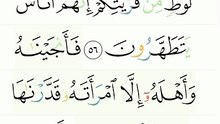 لُوطٍ مِّن قَرْيَتِكُمْ إِنَّهُمْ أُنَاسٌ
يَتَطَهَّرُونَ ٥٦ فَأَنجَيْنَٰهُ
وَأَهْلَهُۥٓ إِلَّا ٱمْرَأَتَهُۥ قَدَّرْنَٰهَا